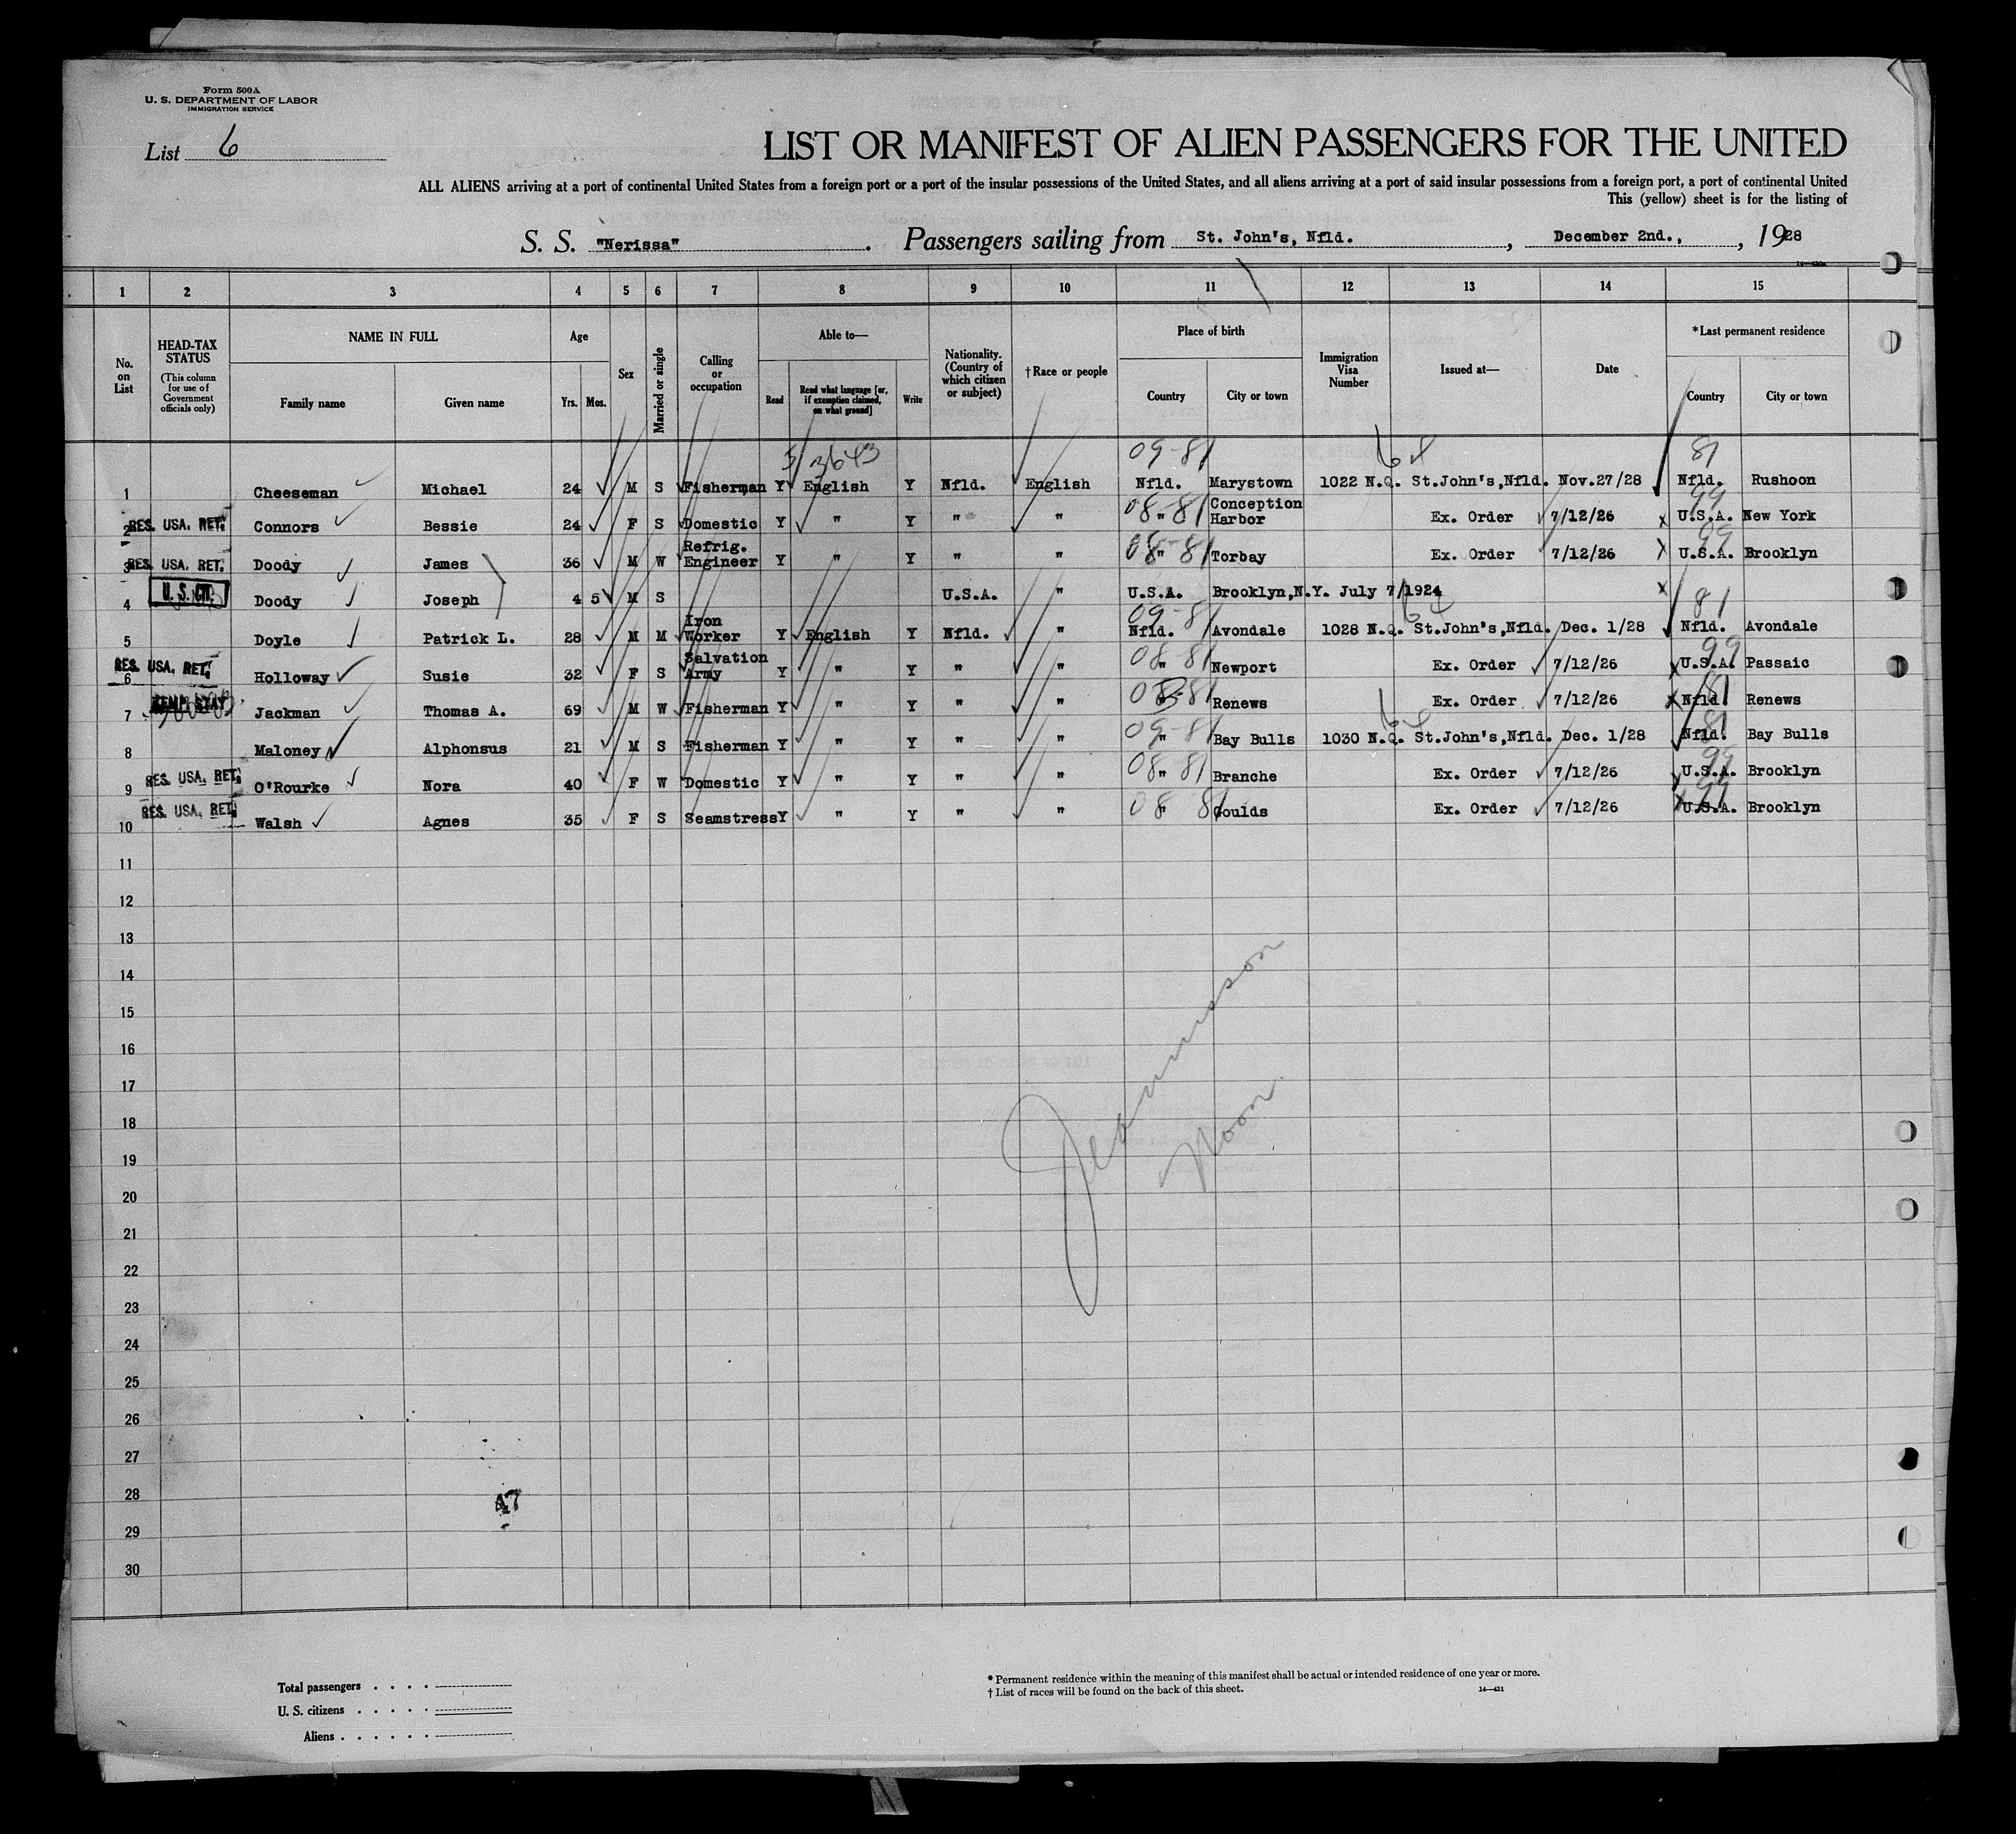 Form 500A
U. S. DEPARTMENT OF LABOR
IMMIGRATION SERVICE
List 6
LIST OR MANIFEST OF ALIEN PASSENGERS FOR THE UNITED
ALL ALIENS arriving at a port of continental United States from a foreign port or a port of the insular possessions of the United States, and all aliens arriving at a port of said insular possessions from a foreign port, a port of continental United
This (yellow) sheet is for the listing of
S. S. "Nerissa" . Passengers sailing from St. John's, Nfld. , December 2nd., , 1928
1 2 3 4 5 6 7 8 9 10 11 12 13 14 15
No. on List
HEAD-TAX STATUS
(This column for use of Government officials only)
NAME IN FULL
Family name Given name
Age
Yrs. Mos.
Sex
Married or single
Calling or occupation
Able to—
Read Read what language [or, if exemption claimed, on what ground] Write
Nationality. (Country of which citizen or subject)
† Race or people
Place of birth
Country City or town
Immigration Visa Number
Issued at—
Date
* Last permanent residence
Country City or town
3643
09-81 64 81
1 Cheeseman Michael 24 M S Fisherman Y English Y Nfld. English Nfld. Marystown 1022 N.Q. St.John's,Nfld. Nov.27/28 Nfld. Rushoon
08-81 99
2 RES. USA. RET. Connors Bessie 24 F S Domestic Y " Y " " " Conception Harbor Ex. Order 7/12/26 U.S.A. New York
08-81 99
3 RES. USA. RET. Doody James 36 M W Refrig. Engineer Y " Y " " " Torbay Ex. Order 7/12/26 U.S.A. Brooklyn
4 U.S. CIT. Doody Joseph 4 5 M S U.S.A. " U.S.A. Brooklyn,N.Y. July 7/1924
09-81 64 81
5 Doyle Patrick L. 28 M M Iron Worker Y English Y Nfld. " Nfld. Avondale 1028 N.Q. St.John's,Nfld. Dec. 1/28 Nfld. Avondale
08-81 99
6 RES. USA. RET. Holloway Susie 32 F S Salvation Army Y " Y " " " Newport Ex. Order 7/12/26 U.S.A. Passaic
81
7 TEMP. STAY Jackman Thomas A. 69 M W Fisherman Y " Y " " Renews Ex. Order 7/12/26 Nfld. Renews
09-81 64 81
8 Maloney Alphonsus 21 M S Fisherman Y " Y " " " Bay Bulls 1030 N.Q. St.John's,Nfld. Dec. 1/28 Nfld. Bay Bulls
08-81 99
9 RES. USA. RET. O'Rourke Nora 40 F W Domestic Y " Y " " " Branche Ex. Order 7/12/26 U.S.A. Brooklyn
08 81 99
10 RES. USA. RET. Walsh Agnes 35 F S Seamstress Y " Y " " " Goulds Ex. Order 7/12/26 U.S.A. Brooklyn
11
12
13
14
15
16
17
18
19
20
21
22
23
24
25
26
27
28
29
30
Noon
47
Total passengers . . . .
U. S. citizens . . . . .
Aliens . . . . . .
* Permanent residence within the meaning of this manifest shall be actual or intended residence of one year or more.
† List of races will be found on the back of this sheet.
14—431